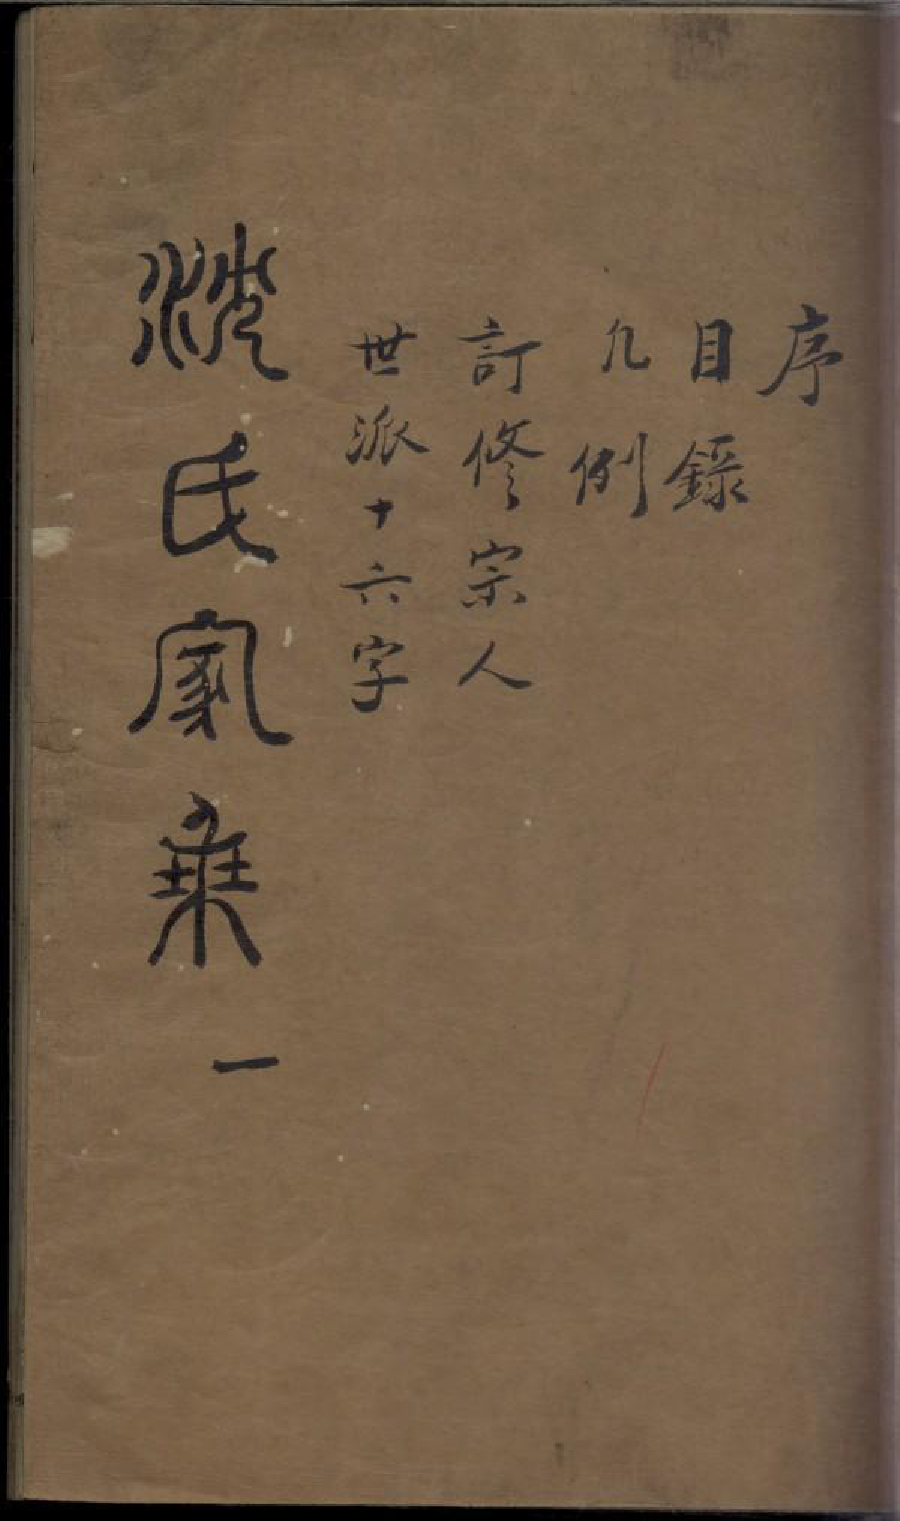 序
目錄
凡例
訂修宗人
世派十六字
氏家乘 一